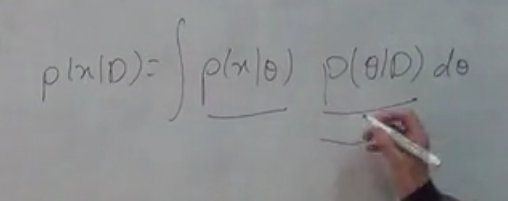 p(x|D) = ∫ p(x|θ) p(θ|D) dθ